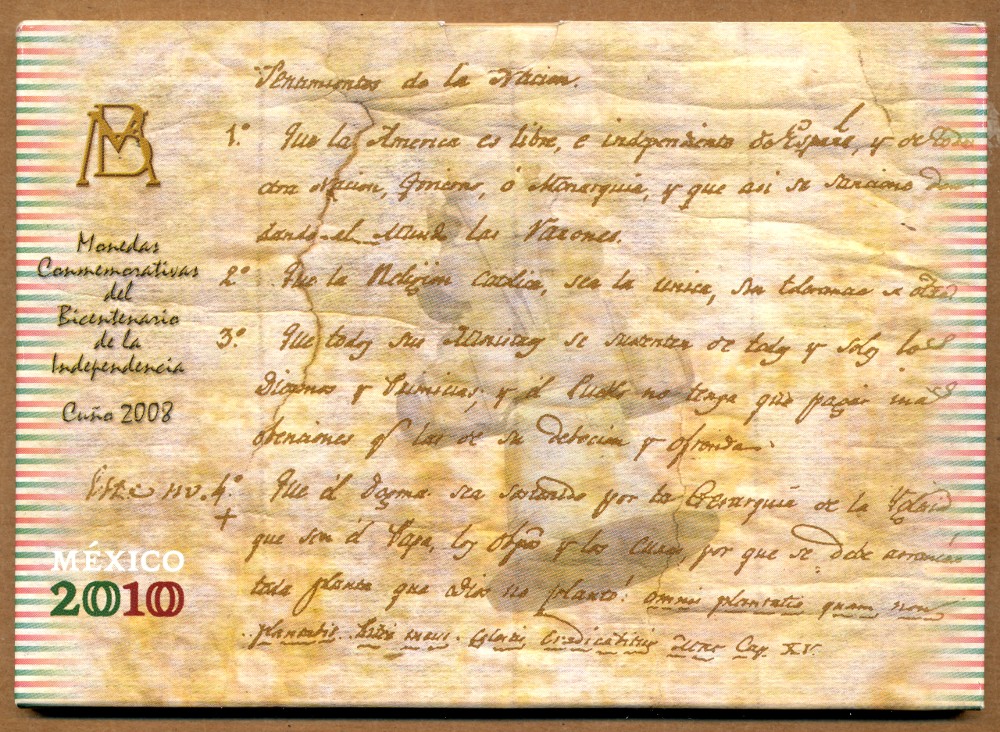 BM
Monedas
Conmemorativas
del
Bicentenario
de la
Independencia
Cuño 2008
MÉXICO
2010
Sentimientos de la Nacion.
1.º Que la America es libre, e independiente de España, y de toda
otra Nacion, Govierno, ó Monarquia, y que asi se sancione
dando al Mundo las razones.
2º Que la Religion Catolica, sea la unica, sin tolerancia de otra
3.º Que todos sus Ministros se sustenten de todos y solos los
Diezmos y Primicias, y el Pueblo no tenga que pagar mas
obenciones q.ͤ las de su debocion y ofrenda.
4.º Que el Dogma sea sostenido por la Gerarquia de la
que son el Papa, los y los Curas, por que se debe arrancar
toda planta que no plantó: omnis plantatis quam non
plantabit Pater meus Cap. XV.